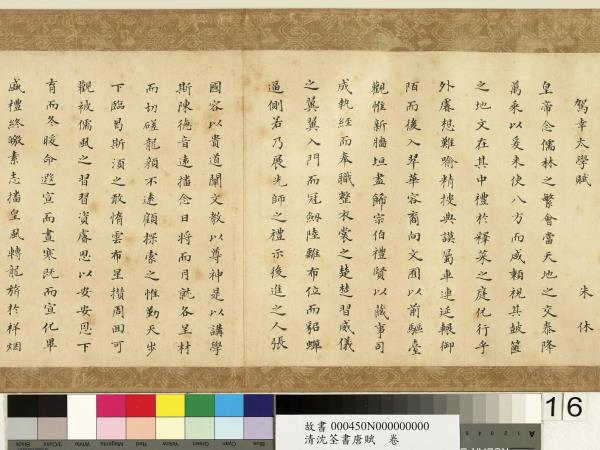 駕幸太學賦
朱休
皇帝念儒林之繁會當天地之交泰降
萬乘以爰來使八方而咸賴視其鼓篋
之地文在其中禮於釋菜之庭化行乎
外睿想難喻精搜典謨蜀車連延輟仰
陌而後入琴華容裔向文囿以前驅臺
觀惟新牆垣盡飾宗伯禮賢以蕆事司
成執經而奉職整衣裳之楚楚習威儀
之翼翼入門而冠劒陸離布位而貂蟬
逼側若乃展先師之禮示後進之人張
國容以貴道闡文教以尊神是以講學
斯陳德音遠播念日將而月就各呈材
而切磋龍顏不遠顧探索之惟勤天步
下臨曷斯須之敢惰雲布星攢周回可
觀被儒風之習習資睿思以安安恩下
育而冬暖命遐宣而晝寒既而宣化畢
盛禮終皦素志播皇風轉龍旂於祥烟
16
故書 000450N000000000
清沈荃書唐賦 卷
Black
3/Color
White
Magenta
Red
Yellow
Green
Cyan
Blue